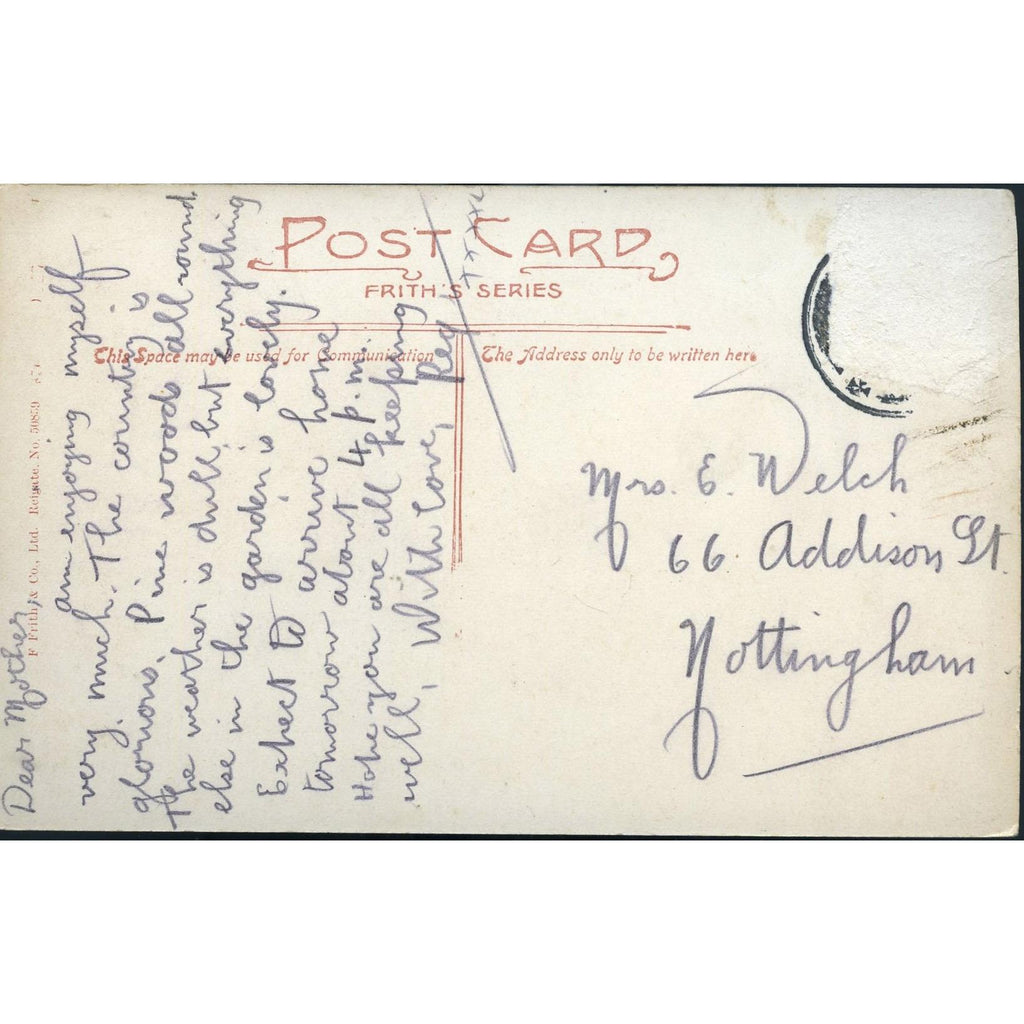 POST CARD
FRITH'S SERIES
This Space may be used for Communication
The Address only to be written here
F Frith & Co., Ltd. Reigate. No. 50859
Dear Mother,
am enjoying myself
very much. The country is
glorious. Pine woods all round.
The weather is dull, but everything
else in the garden is lovely.
Expect to arrive home
tomorrow about 4 p.m.
Hope you are all keeping
well, With love, Peg
xxxxx
Mrs. E. Welch
66. Addison St.
Nottingham